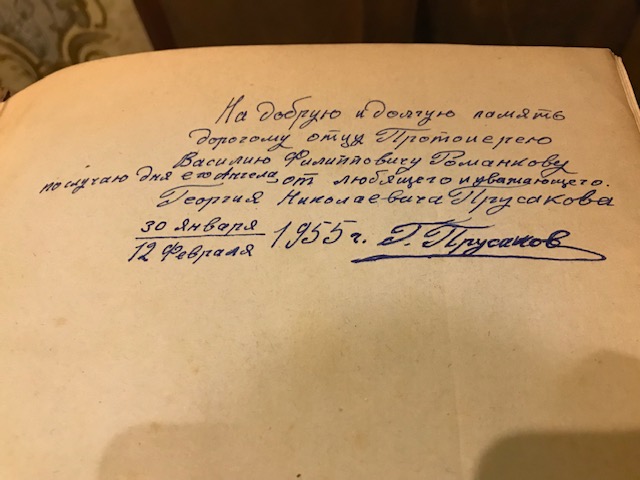 На добрую и долгую память
дорогому отцу Протоиерею
Василию Филипповичу Романкову
по случаю дня его Ангела, от любящего и уважающего.
Георгия Николаевича Прусакова
30 января
12 февраля
1955 г. Г. Прусаков